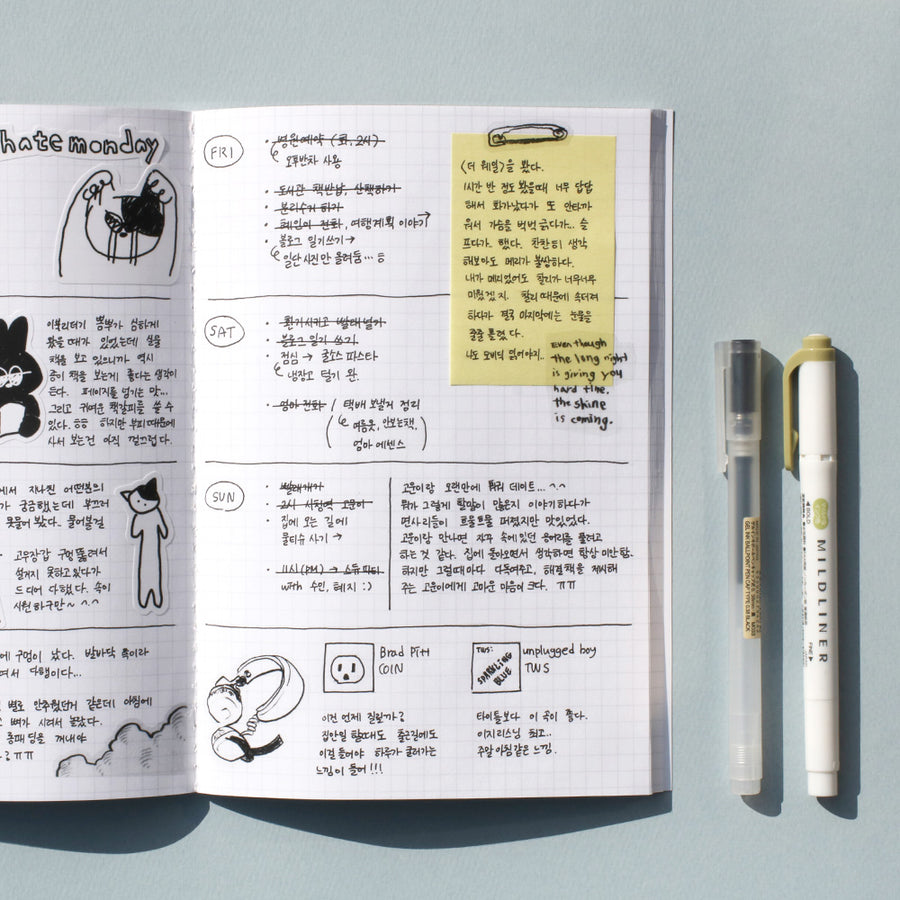 hate monday
이북리더기 뽐뿌가 심하게
왔을 때가 있었는데 실물
책을 보고 있으니까 역시
종이 책을 보는게 좋다는 생각이
든다. 페이지를 넘기는 맛...
그리고 귀여운 책갈피를 쓸 수
있다. ㅎㅎ 하지만 부피때문에
사서 보는건 아직 껄끄럽다.
에서 지나진 어떤분의
가 궁금했는데 부끄러
못물어 봤다. 물어볼걸
고무장갑 구멍 뚫려서
설거지 못하고 있다가
드디어 다 했다. 속이
시원하구만~ ^.^
에 구멍이 났다. 발바닥 쪽이라
여서 다행이다...
별로 안추웠던거 같은데 아침에
뼈가 시려서 놀랐다.
롱패딩을 꺼내야
? ㅠㅠ
FRI
• 병원예약 (화, 24)
오후반차 사용
• 도서관 책반납, 산책하기
• 분리수거 하기
• 혜인이 전화, 여행계획 이야기→
• 블로그 일기쓰기→
일단 사진만 올려둠...ㅎ
<더 웨일>을 봤다.
1시간 반 정도 봤을때 너무 답답
해서 화가났다가 또 안타까
워서 가슴을 벅벅 긁다가... 슬
프다가 했다. 찬찬히 생각
해보아도 메리가 불쌍하다.
내가 메리였어도 찰리가 너무너무
미웠겠지. 찰리 때문에 속터져
하다가 결국 마지막에는 눈물을
줄줄 흘렸다.
나도 모비딕 읽어야지..
Even though
the long night
is giving you
hard time,
the shine
is coming.
SAT
• 환기시키고 빨래널기
• 블로그 일기 쓰기
• 점심 → 굴소스 파스타
냉장고 털기 완.
• 엄마 전화 / 택배 보낼거 정리
여름옷, 안보는책,
엄마 에센스
SUN
• 빨래개기
• 2시 시청역 고운이
• 집에 오는 길에
물티슈 사기 →
• 11시(PM) → 스터디파티
with 수인, 혜지 :)
고운이랑 오랜만에 데이트... ^.^
뭐가 그렇게 할말이 많은지 이야기하다가
면사리들이 트롤트롤 퍼졌지만 맛있었다.
고운이랑 만나면 자꾸 속에 있던 응어리를 풀려고
하는것 같다. 집에 돌아오면서 생각하면 항상 미안함.
하지만 그럴때마다 다독여주고, 해결책을 제시해
주는 고운이에게 고마운 마음이 크다. ㅠㅠ
Brad Pitt
COIN
이건 언제 질릴까?
집안일 할때도 출근길에도
이걸 들어야 하루가 굴러가는
느낌이 들어!!!
TWS:
SPARKLING
BLUE
unplugged boy
TWS
타이틀보다 이 곡이 좋다.
이지리스닝 최고..
주말 아침같은 느낌.
GEL INK BALLPOINT PEN CAP TYPE 0.38 BLACK
◀BOLD
MILDLINER
FINE▶